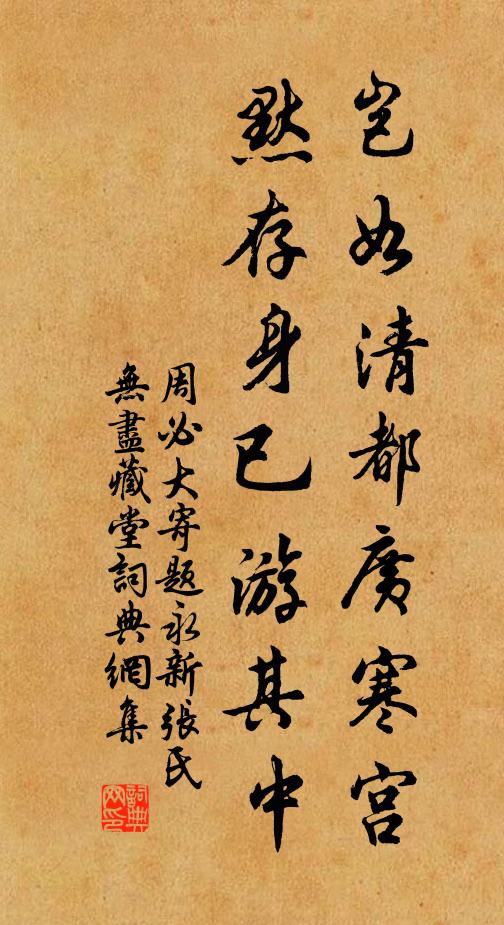 岂如清都廣寒宫
默存身已游其中
周必大寄題永新張氏
無盡藏堂詞典網集
詞典網印